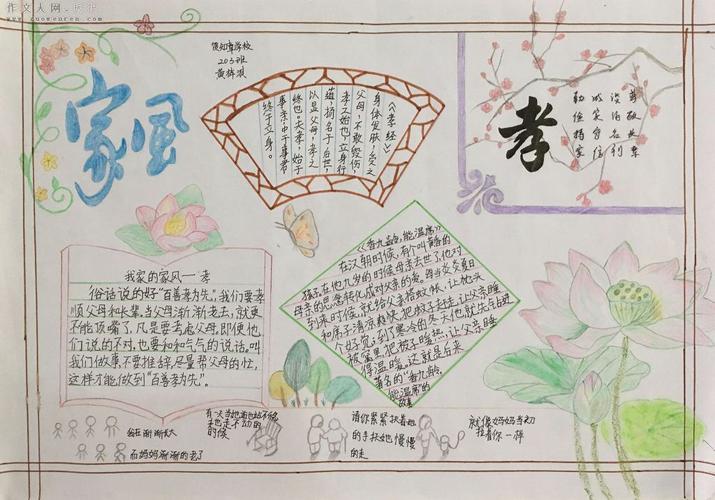 作文人网
www.zuowenren.com
家风
203班
《孝经》
身体发肤,受之
父母,不敢毁伤,
孝之始也。立身行
道,扬名于后世,
以显父母,孝之
终也。夫孝,始于
事亲,中于事君
终于立身。
孝
淡泊名利
诚实自信
勤俭持家
我家的家风一孝
俗话说的好"百善孝为先",我们要孝
顺父母和长辈,当父母渐渐老去,就更
不能顶嘴了,凡是要考虑父母,即便他
们说的不对,也要和和气气的说话。叫
我们做事,不要推辞,尽量帮父母的忙,
这样才能做到"百善孝为先"。
《香九龄,能温席》
在汉朝时候,有个叫黄香的
孩子,在他九岁的时候母亲去世了,他对
母亲的思念转化成对父亲的爱。每当炎炎夏日
到来时候,就给父亲搭蚊帐,让枕头
和席子清凉爽快,把蚊子赶走,让父亲睡
个好觉;到了寒冷的冬天他就先钻进
被窝里,把被子暖热,让父亲睡
得温暖。这就是古来
著名的"香九龄,
能温席"的
故事
我在渐渐长大
而妈妈渐渐的老了
有一天当她面也站不稳
走也走不动的
的时候
请你紧紧扶着她
的手扶她慢慢
的走
就像妈妈当初
拉着你一样